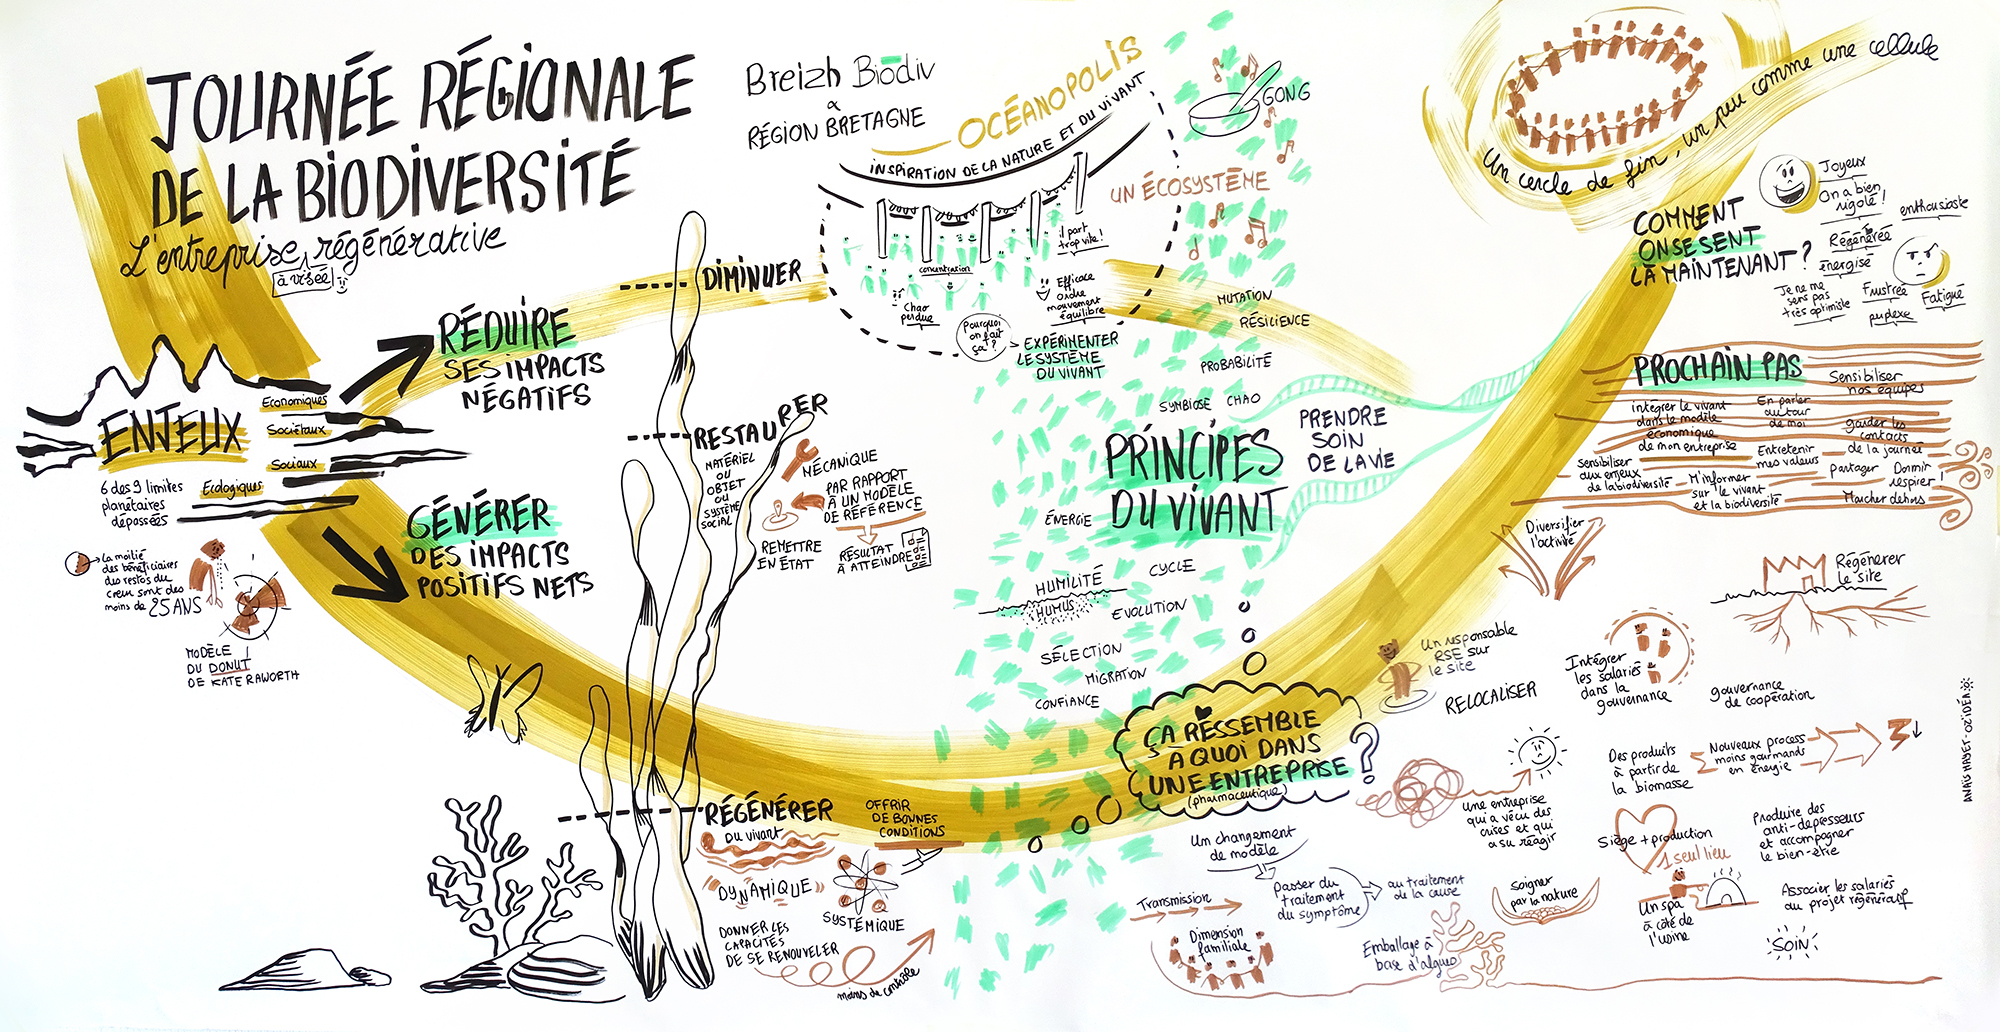 JOURNÉE RÉGIONALE
DE LA BIODIVERSITÉ
L'entreprise régénérative
à visée
Breizh Biodiv
&
RÉGION BRETAGNE
OCÉANOPOLIS
INSPIRATION DE LA NATURE ET DU VIVANT
GONG
UN ÉCOSYSTÈME
il part
trop vite !
concentration
Chao
perdue
Efficace
ordre
mouvement
équilibre
Pourquoi
on fait
ça ?
EXPÉRIMENTER
LE SYSTÈME
DU VIVANT
ENJEUX
Economiques
Sociétaux
Sociaux
Ecologiques
6 des 9 limites
planétaires
dépassées
La moitié
des bénéficiaires
des restos du
cœur sont des
moins de 25 ANS
MODÈLE
DU DONUT
DE KATE RAWORTH
RÉDUIRE
SES IMPACTS
NÉGATIFS
GÉNÉRER
DES IMPACTS
POSITIFS NETS
DIMINUER
RESTAURER
MATÉRIEL
OU
OBJET
OU
SYSTÈME
SOCIAL
MÉCANIQUE
PAR RAPPORT
À UN MODÈLE
DE RÉFÉRENCE
REMETTRE
EN ÉTAT
RÉSULTAT
À ATTEINDRE
RÉGÉNÉRER
DU vivant
OFFRIR
DE BONNES
CONDITIONS
"DYNAMIQUE"
SYSTÉMIQUE
DONNER LES
CAPACITÉS
DE SE RENOUVELER
moins de contrôle
MUTATION
RÉSILIENCE
PROBABILITÉ
SYMBIOSE CHAO
PRINCIPES
DU VIVANT
PRENDRE
SOIN
DE LA VIE
ÉNERGIE
CYCLE
HUMILITÉ
HUMUS
EVOLUTION
SÉLECTION
MIGRATION
CONFIANCE
ÇA RESSEMBLE
À QUOI DANS
UNE ENTREPRISE ?
(pharmaceutique)
Un changement
de modèle
Transmission
Passer du
traitement
du symptôme
au traitement
de la cause
Dimension
familiale
Emballage à
base d'algues
Soigner
par la nature
Un cercle de fin, un peu comme une cellule
COMMENT
ON SE SENT
LÀ MAINTENANT ?
Joyeux
On a bien
rigolé !
enthousiaste
Régénérée
énergisé
Je ne me
sens pas
très optimiste
Frustrée
perplexe
Fatigué
PROCHAIN PAS
Sensibiliser
nos équipes
intégrer le vivant
dans le modèle
économique
de mon entreprise
En parler
autour
de moi
garder les
contacts
de la journée
Entretenir
mes valeurs
Sensibiliser
aux enjeux
de la biodiversité
M'informer
sur le vivant
et la biodiversité
Partager
Dormir
respirer !
Marcher dehors
Diversifier
l'activité
Régénerer
le site
Un responsable
RSE sur
le site
RELOCALISER
Intégrer
les salariés
dans la
gouvernance
gouvernance
de coopération
une entreprise
qui a vécu des
crises et qui
a su réagir
Des produits
à partir de
la biomasse
Nouveaux process
moins gourmands
en énergie
Siège + production
1 seul lieu
Produire des
anti-dépresseurs
et accompagner
le bien-être
Un spa
à côté de
l'usine
Associer les salariés
au projet régénératif
SOIN
ANAÏS HAYET-OZ'IDÉA